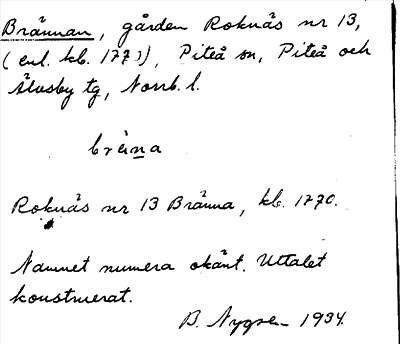 Brännan, gården Roknäs nr 13,
(enl. kb. 1770), Piteå sn, Piteå och
Älvsby tg, Norrb. l.
bräna
Roknäs nr 13 Bränna, kb. 1770.
Namnet numera okänt. Uttalet
konstruerat.
B. Nygren 1934.